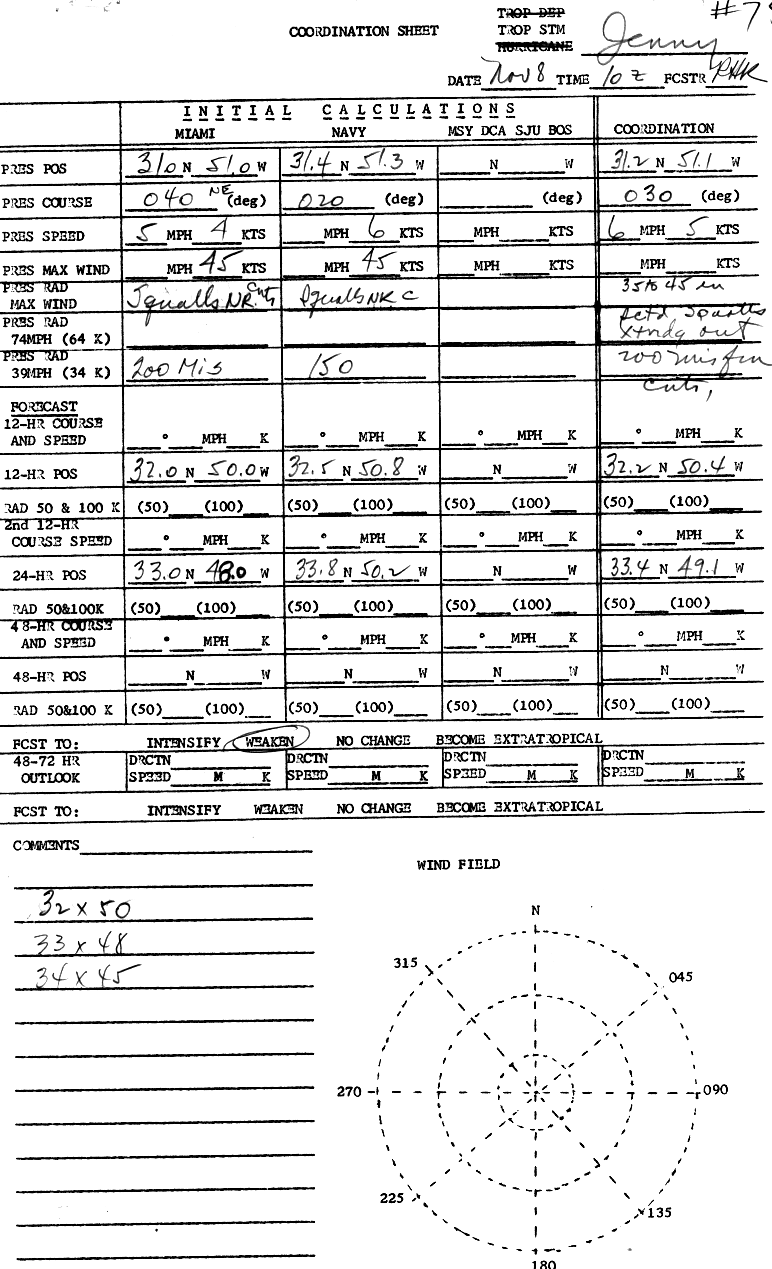 TROP DEP
#7
COORDINATION SHEET TROP STM Jenny
HURRICANE
DATE Nov 8 TIME 10 Z FCSTR
INITIAL CALCULATIONS
MIAMI NAVY MSY DCA SJU BOS COORDINATION
PRES POS 31.0 N 51.0 W 31.4 N 51.3 W N W 31.2 N 51.1 W
PRES COURSE 040 NE (deg) 020 (deg) (deg) 030 (deg)
PRES SPEED 5 MPH 4 KTS MPH 6 KTS MPH KTS 6 MPH 5 KTS
PRES MAX WIND MPH 45 KTS MPH 45 KTS MPH KTS MPH KTS
PRES RAD
MAX WIND Squalls NR Cntr Squalls NR C 35 to 45 in
PRES RAD sctd squalls
74MPH (64 K) xtndg out
PRES RAD
39MPH (34 K) 200 Mis 150 200 mis fm
cntr,
FORECAST
12-HR COURSE
AND SPEED ° MPH K ° MPH K ° MPH K ° MPH K
12-HR POS 32.0 N 50.0 W 32.5 N 50.8 W N W 32.2 N 50.4 W
RAD 50 & 100 K (50) (100) (50) (100) (50) (100) (50) (100)
2nd 12-HR
COURSE SPEED ° MPH K ° MPH K ° MPH K ° MPH K
24-HR POS 33.0 N 48.0 W 33.8 N 50.2 W N W 33.4 N 49.1 W
RAD 50&100K (50) (100) (50) (100) (50) (100) (50) (100)
48-HR COURSE
AND SPEED ° MPH K ° MPH K ° MPH K ° MPH K
48-HR POS N W N W N W N W
RAD 50&100 K (50) (100) (50) (100) (50) (100) (50) (100)
FCST TO: INTENSIFY WEAKEN NO CHANGE BECOME EXTRATROPICAL
48-72 HR DRCTN DRCTN DRCTN DRCTN
OUTLOOK SPEED M K SPEED M K SPEED M K SPEED M K
FCST TO: INTENSIFY WEAKEN NO CHANGE BECOME EXTRATROPICAL
COMMENTS
WIND FIELD
32 x 50
33 x 48
34 x 45
N
315 045
270 090
225 135
180